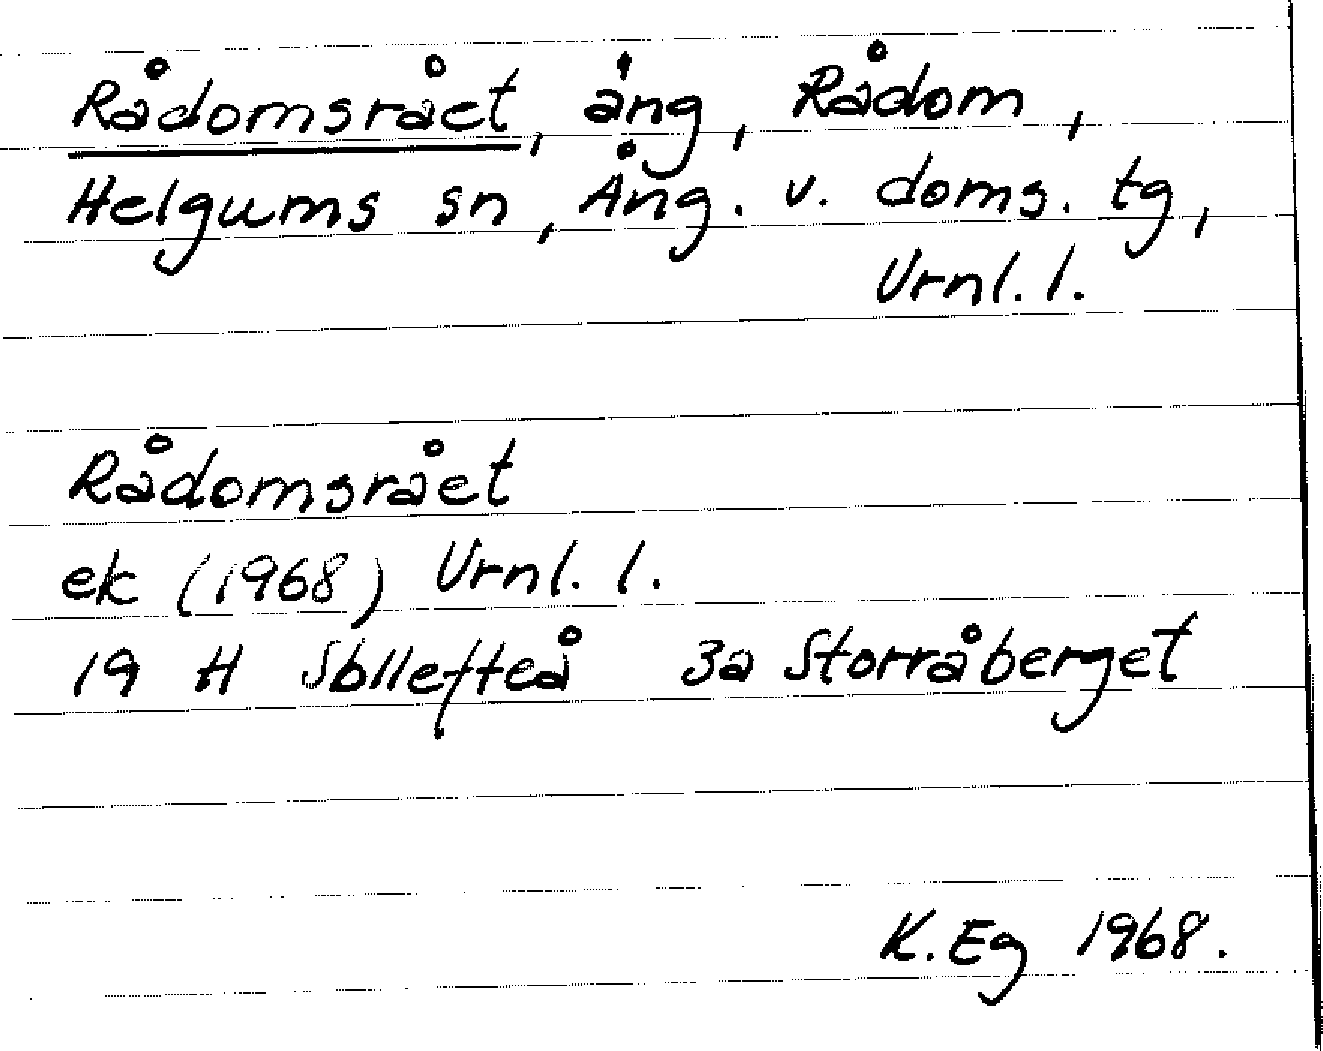 Rådomsrået, äng, Rådom,
Helgums sn, Ång. v. doms. tg,
Urnl. l.
Rådomsrået
ek (1968) Urnl. l.
19 H Sollefteå 3a Storråberget
K. Eg 1968.